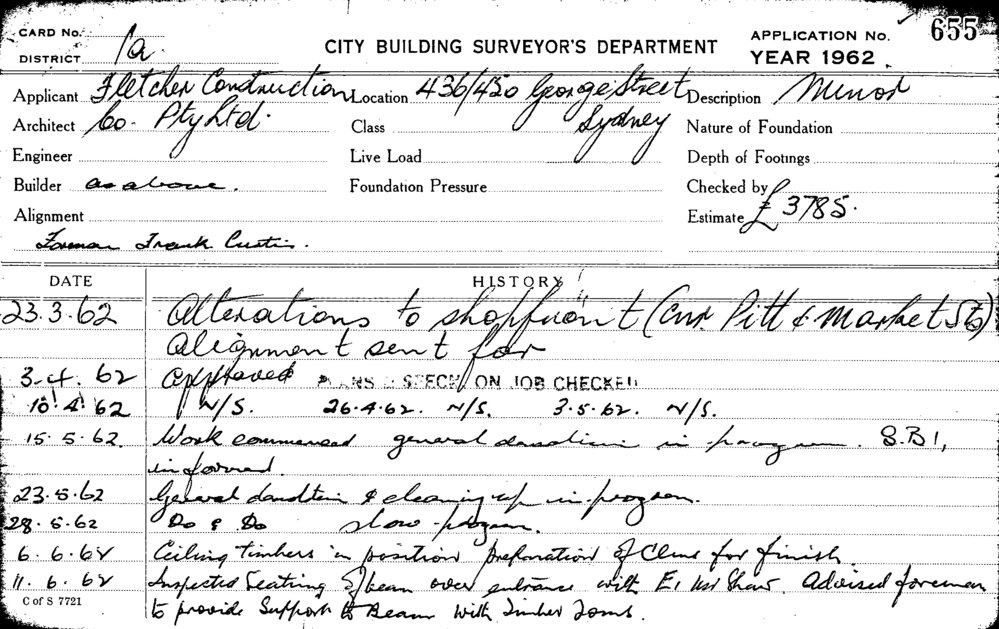 CARD No.
DISTRICT 1a.
CITY BUILDING SURVEYOR'S DEPARTMENT
APPLICATION No. 655
YEAR 1962.
Applicant Fletcher Construction
Location 436/450 George Street
Description Minor
Architect Co. Pty Ltd.
Class
Sydney
Nature of Foundation
Engineer
Live Load
Depth of Footings
Builder as above.
Foundation Pressure
Checked by
Alignment
Estimate £ 3785.
Forman Frank Curtis.
DATE
HISTORY
23.3.62 Alterations to shopfront (Cnr. Pitt & Market Sts)
Alignment sent for
3.4.62 Approved PLANS & SPECN. ON JOB CHECKED
10.4.62 N/S. 26.4.62. N/S. 3.5.62. N/S.
15.5.62. Work commenced general in progress. S.B1,
informed.
23.5.62 General & cleaning up in progress.
28.5.62 Do & Do slow progress.
6.6.62 Ceiling timbers in position preparation of for finish.
11.6.62 Inspected Seating of beam over entrance with Shaw. Advised foreman
C of S 7721
to provide Support to Beam with Timber